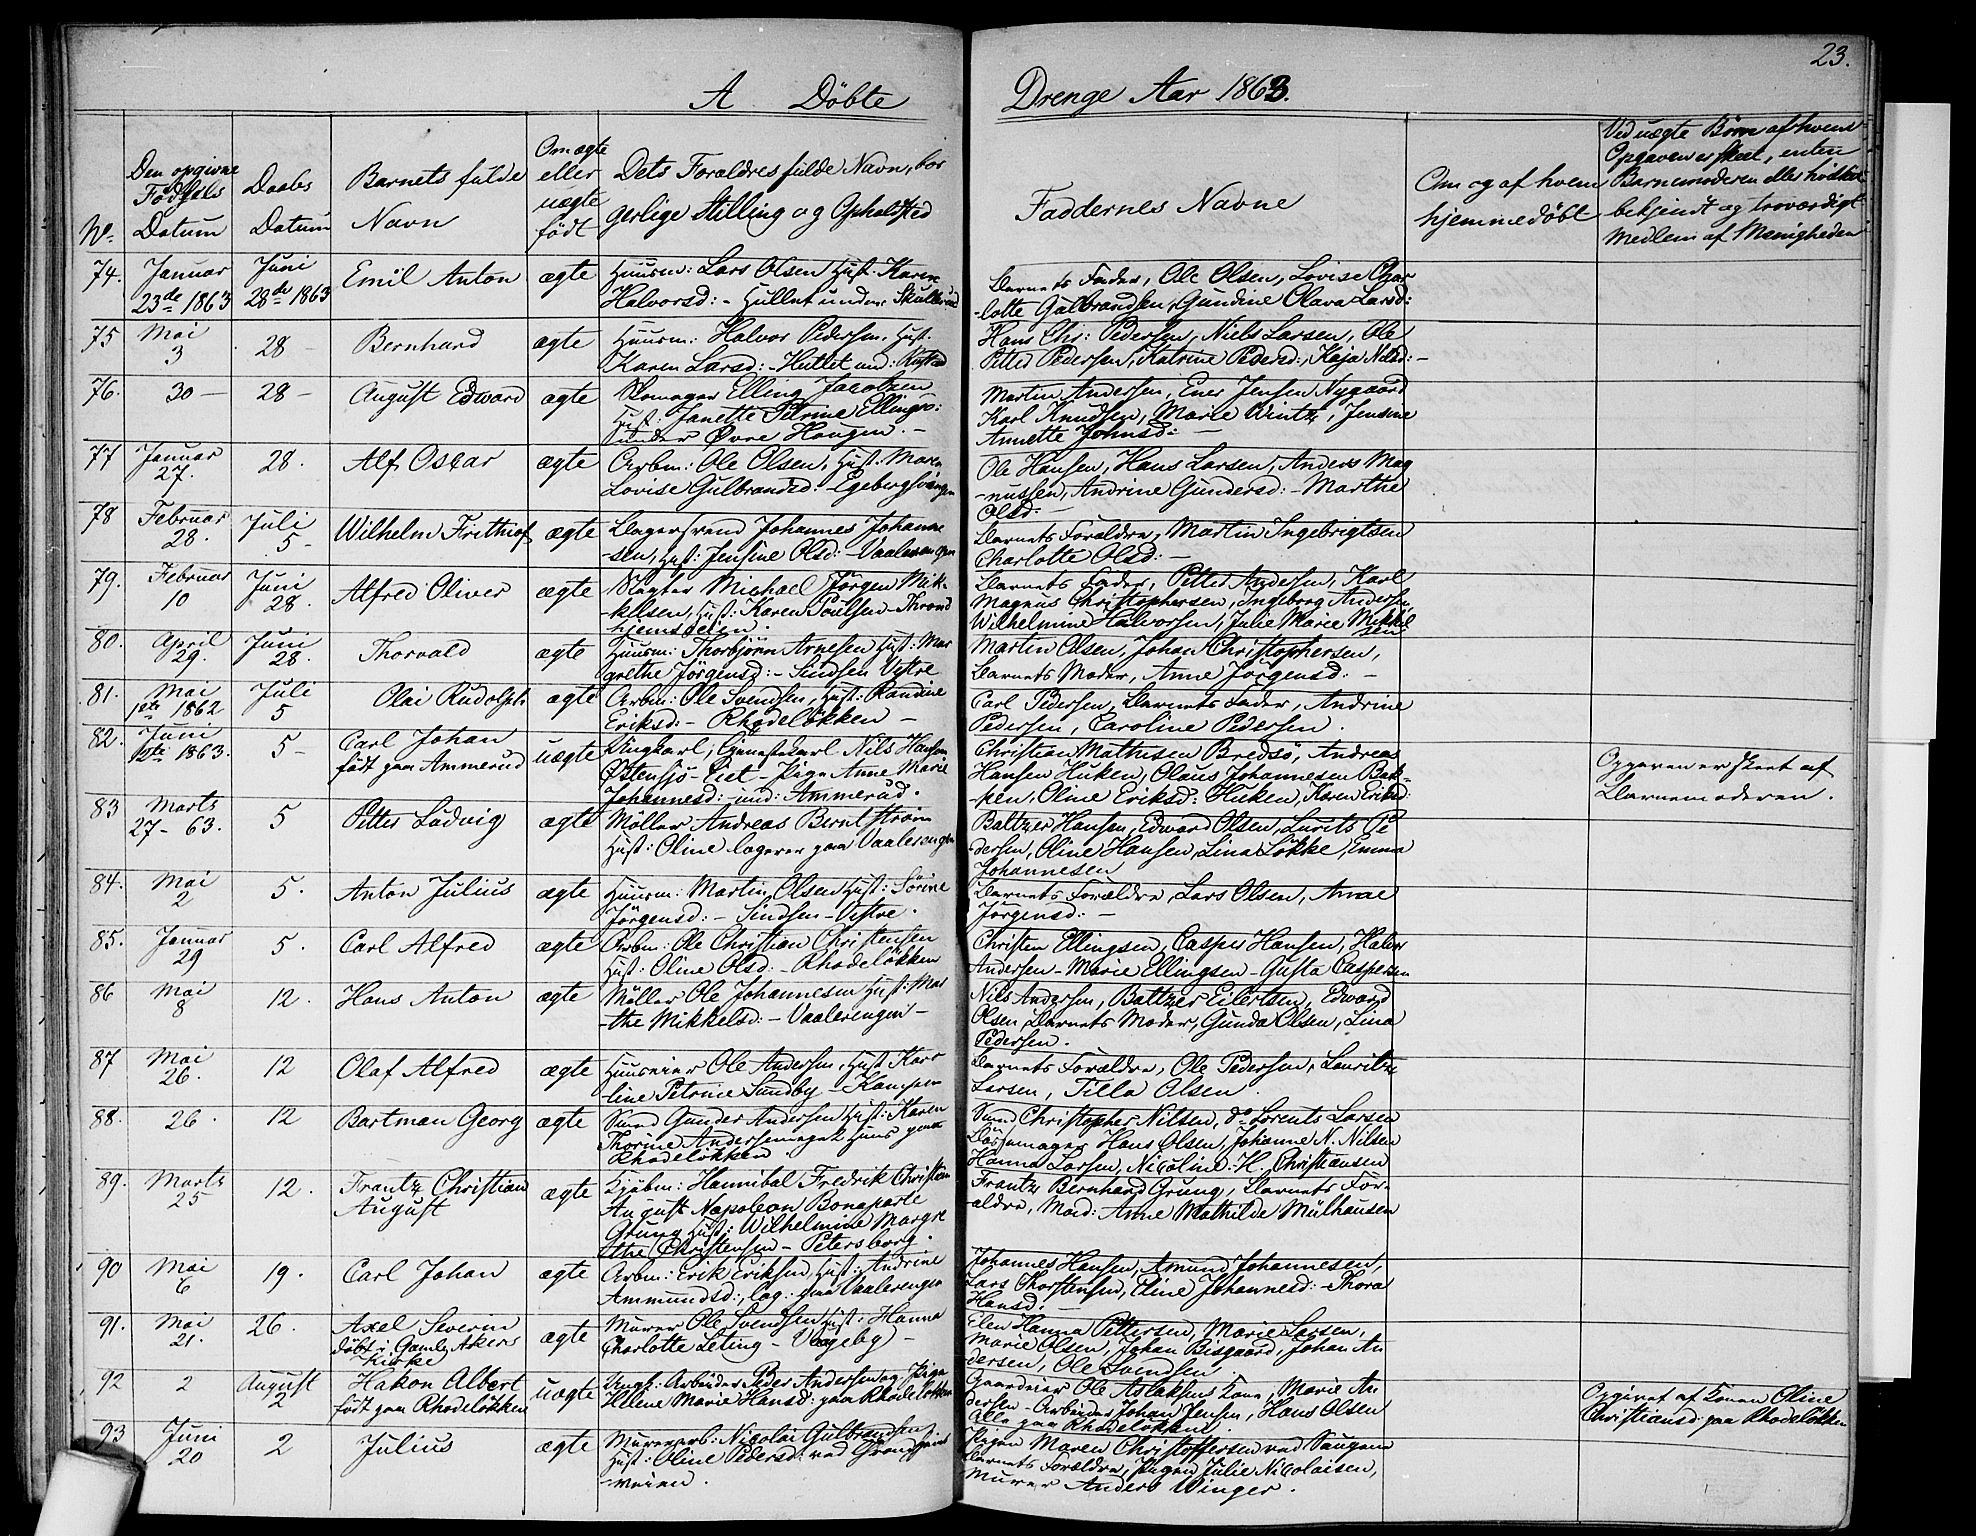 23.
A Döbte Drenge Aar 1863.
No. Den opgivne Födsels Datum
Daabs Datum
Barnets fulde Navn
Om ægte eller uægte födt
Dets Forældres fulde Navn, borgerlige Stilling og Opholdsted
Faddernes Navne
Om og af hvem hjemmedöbt
Ved uægte Börn af hvem Opgaven er skeet, enten Barnemoderen eller hvilket bekjendt og troværdigt Medlem af Menigheden
74. Januar 23de 1863
Juni 28de 1863
Emil Anton
ægte
Huusm: Lars Olsen Hust: Karen
Halvorsd: - Hullet under Skullerud
Barnets Fader, Ole Olsen, Lovise Char
-lotte Gulbrandsen, Gundine Olava Larsd:
75 Mai 3
28 -
Bernhard
ægte
Huusm: Halvor Pedersen, Hust:
Karen Larsd: - Hullet und:
Hans Chr: Pedersen, Niels Larsen, Ole
Petter Pedersen, Katrine Pedersd:, Kaja Nilsd: -
76. 30 -
28 -
August Edward
ægte
Skomager Elling Jacobsen
Hust: Janette Petrine Ellings:
under Øvre Haugen. -
Martin Andersen, Ener Jensen Nygaard
Karl Knudsen, Marie Wintz, Jensine
Annette Johnsd: -
77 Januar 27.
28.
Alf Oscar
ægte
Arbm: Ole Olsen, Hust: Maren
Lovise Gulbrandsd: Egebergsvangen
Ole Hansen, Hans Larsen, Anders Mag
-nussen, Andrine Gundersd: - Marthe
Olsd: -
78 Februar 28.
Juli 5 -
Wilhelm Frithiof
ægte
Bagersvend Johannes Johanne
-sen, Hust: Jensine Olsd: - Vaalerengen
Barnets Forældre, Martin Ingebrigtsen
Charlotte Olsd: -
79. Februar 10
Juni 28.
Alfred Oliver
ægte
Slagter Michael Jörgen Mik-
-kelsen, Hust: Karen Poulsen - Thrond
hjemsveien.
Barnets Fader, Petter Andersen, Karl
Magnus Christophersen, Ingeborg Andersen
Wilhelmine Halvorsen, Julie Marie Mikkel
sen
80. April 29.
Juni 28.
Thorvald
ægte
Huusm: Thorbjörn Arnesen Hust: Mar
grethe Jörgensd: - Sindsen Vestre
Martin Olsen, Johan Christophersen,
Barnets Moder, Anne Jörgensd: -
81. Mai 1ste 1862
Juli 5
Olai Rudolph
ægte
Arbm: Ole Svendsen, Hust: Randine
Eriksd: - Rhodelökken -
Carl Pedersen, Barnets Fader, Andrine
Pedersen, Caroline Pedersen.
82. Juni 1863.
5 -
Carl Johan
födt paa Ammerud
uægte
Ungkarl, Gjenestekarl Nils Hansen
Østensjö-Eiet - Pige Anne Marie
Johannesd: und: Ammerud.
Christian Mathisen Bredsö, Andreas
Hansen Huken, Olaus Johannesen Bak-
-ken, Oline Eriksd: Huken, Karen Eriksd:
Opgaven er skeet af
Barnemoderen.
83 Marts 27 - 63.
5
Petter Ludvig
ægte
Möller Andreas Berntström
Hust: Oline logerer paa Vaalerengen
Baltzer Hansen, Edward Olsen, Laurits Pe
-dersen, Oline Hansen, Lina Lökke, Emma
Johannesen
84. Mai 2
5.
Anton Julius
ægte
Huusm: Martin Olsen Hust: Sörine
Jörgensd: - Sindsen - Vestre.
Barnets Forældre, Lars Olsen, Anne
Jörgensd: -
85. Januar 29
5.
Carl Alfred
ægte
Arbm: Ole Christian Christensen
Hust: Oline Olsd: - Rhodelökken
Christen Ellingsen, Casper Hansen, Halvor
Andersen - Marie Ellingsen - Gusta Caspersen
86 Mai 8
12.
Hans Anton
ægte
Möller Ole Johannesen Hust: Mar
-the Mikkelsd: - Vaalerengen -
Nils Andersen, Baltzer Eilertsen, Edward
Olsen Barnets Moder, Gunda Olsen, Lina
Pedersen.
87 Mai 26.
12
Olaf Alfred
ægte
Huuseier Ole Andersen, Hust: Karo
-line Petrine Sundby - Kampen
Barnets Forældre, Ole Pedersen, Lauritz
Larsen, Tilla Olsen.
88. 26.
12
Bartman Georg
ægte
Svend Gunder Andersen Hust: Karen
Thorine Andersen eget Huus paa
Rhodelökken.
Svend Christopher Nilsen, do Lorents Larsen
Bössemager Hans Olsen, Johanne N. Nilsen
Hanna Larsen, Nicoline H. Christiansen
89. Marts 25
12.
Frantz Christian
August
ægte
Kjöbm: Hannibal Fredrik Christian
August Napoleon Bonaparte
Grung Hust: Wilhelmine Margre
the Christensen - Petersborg.
Frantz Bernhard Grung, Barnets For-
-ældre, Mad: Anne Mathilde Mülhausen
90 Mai 6
19.
Carl Johan
ægte
Arbm: Erik Eriksen, Hust: Andrine
Ammundsd:, log: paa Vaalerengen
Johannes Hansen, Amund Johannesen,
Lars Thorstensen, Eline Johannesd: - Thora
Hansd: -
91. Mai 21.
26.
Axel Severin
döbt i Gamle Akers
Kirke
ægte
Murer Ole Svendsen Hust: Hanna
Charlotte Leting - Vøgeby -
Elen Hanna Pettersen, Marie Larsen,
Marie Olsen, Johan Bisgaard, Johan An
dersen, Ole Svendsen
92 2
August 2
Hakon Albert
födt paa Rhodelökken
uægte
Ungk: Arbeider Peder Andersen og Pige
Helene Marie Hansd: paa Rhodelökken
Gaardeier Ole Aslaksens Kone, Marie An
dersen - Arbeider Johan Jensen, Hans Olsen
Alle paa Rhodelökken.
Opgivet af Konen Oline
Christiansd: paa Rhodelökken
93 Juni 20
2
Julius
ægte
Murerarb: Nicolai Gulbrandsen
Hust: Oline Pedersd: ved Trondhjems
-veien.
Pigen Maren Christoffersen ved Saugene
Barnets Forældre, Pigen Julie Nicolaisen,
Murer Anders Winger.